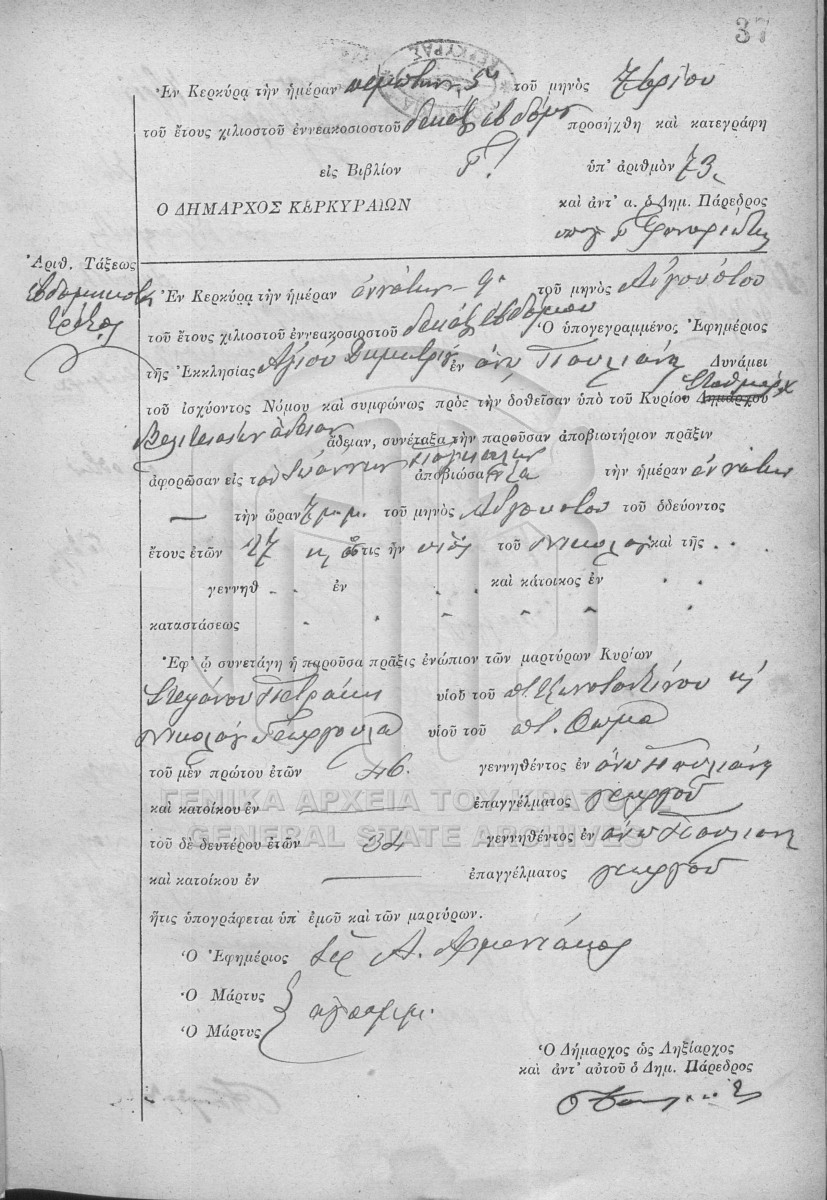 37
ΚΕΡΚΥΡΑΣ
Ἐν Κερκύρᾳ τὴν ἡμέραν πέμπτην 5ην τοῦ μηνὸς 7βρίου
τοῦ ἔτους χιλιοστοῦ ἐννεακοσιοστοῦ δεκάτ ἑβδόμ προσήχθη καὶ κατεγράφη
εἰς Βιβλίον Γ! ὑπ' ἀριθμὸν 73
Ὁ ΔΗΜΑΡΧΟΣ ΚΕΡΚΥΡΑΙΩΝ καὶ ἀντ' α. ὁ Δημ. Πάρεδρος
Ἀριθ. Τάξεως
Ἐν Κερκύρᾳ τὴν ἡμέραν ἐννάτην 9ην τοῦ μηνὸς Αὐγούστου
τοῦ ἔτους χιλιοστοῦ ἐννεακοσιοστοῦ δεκάτ ἑβδόμου Ὁ ὑπογεγραμμένος Ἐφημέριος
τῆς Ἐκκλησίας Ἁγίου Δημητρίου ἐν ἄνω Δυνάμει
τοῦ ἰσχύοντος Νόμου καὶ συμφώνως πρὸς τὴν δοθεῖσαν ὑπὸ τοῦ Κυρίου Δημάρχου Σταθμάρχ
ἄδειαν ἄδειαν, συνέταξα τὴν παροῦσαν ἀποβιωτήριον πρᾶξιν
ἀφορῶσαν εἰς τὸν Ἰωάννην ἀποβιώσαντα τὴν ἡμέραν ἐννάτην
— τὴν ὥραν 7 μ.μ. τοῦ μηνὸς Αὐγούστου τοῦ ὁδεύοντος
ἔτους ἐτῶν 27 ὅστις ἦν υἱὸς τοῦ Νικολάου καὶ τῆς . .
γεννηθ . . ἐν . . καὶ κάτοικος ἐν . .
καταστάσεως
Ἐφ' ᾧ συνετάγη ἡ παροῦσα πρᾶξις ἐνώπιον τῶν μαρτύρων Κυρίων
Στεφάνου Πετράκη υἱοῦ τοῦ ποτ. Κωνσταντίνου κ
Νικολάου υἱοῦ τοῦ ποτ. Θωμᾶ
τοῦ μὲν πρώτου ἐτῶν 46. γεννηθέντος ἐν ἄνω
καὶ κατοίκου ἐν — ἐπαγγέλματος γεωργοῦ
ΓΕΝΙΚΑ ΑΡΧΕΙΑ ΤΟΥ ΚΡΑΤΟΥΣ
GENERAL STATE ARCHIVES
τοῦ δὲ δευτέρου ἐτῶν 34 γεννηθέντος ἐν ἄνω
καὶ κατοίκου ἐν — ἐπαγγέλματος γεωργοῦ
ἥτις ὑπογράφεται ὑπ' ἐμοῦ καὶ τῶν μαρτύρων.
Ὁ Ἐφημέριος Ἱερ Α.
Ὁ Μάρτυς
ἀγράμμ.
Ὁ Μάρτυς
Ὁ Δήμαρχος ὡς Ληξίαρχος
καὶ ἀντ' αὐτοῦ ὁ Δημ. Πάρεδρος